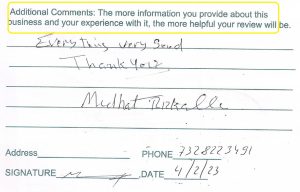 Additional Comments: The more information you provide about this
business and your experience with it, the more helpful your review will be.
Everything very Good
Thank You.
Medhat Rizkalla
Address PHONE 7328223491
SIGNATURE DATE 4/2/23